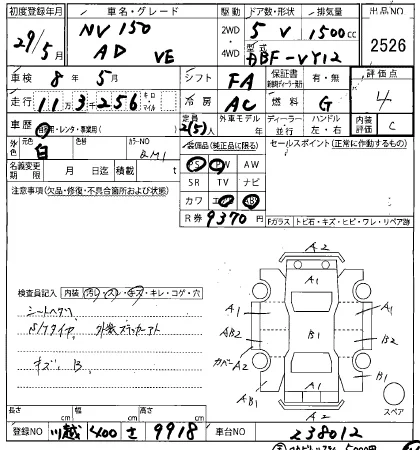 初度登録年月 車名・グレード 駆動 ドア数・形状 排気量 出品NO
29/5月 NV150 AD VE 2WD 4WD 5 V 1500cc 2526
型式 DBF-VY12
車検 8年 5月 シフト FA 保証書 有・無 評価点
走行 11万3千256 キロ マイル 冷房 AC 燃料 G 4
車歴 自家用・レンタ・事業用( ) 定員 2(5)人 外車モデル 年 ディーラー・並行 ハンドル 左・右 内装評価 C
外色 元色 白 色替 カラーNO QM1 装備品(純正品に限る) セールスポイント(正常に作動するもの)
PS PW AW
名義変更期限 月 日迄 積載 t SR TV ナビ
注意事項(欠品・修復・不具合箇所および状態) カワ エア AB
R券 9370円 Fガラス トビ石・キズ・ヒビ・ワレ・リペア跡
A2
A1
検査員記入 内装(汚レ・スレ・キズ・キレ・コゲ・穴
シートヘタリ A1 A1
S/Tタイヤ 外装ステッカーアト AB2 B1 B2
カバーA2
キズ B. B1
AB1 A1
A2 スペア
長さ cm 幅 cm 高さ cm
登録NO 川越 400 さ 9918 車台NO 238012